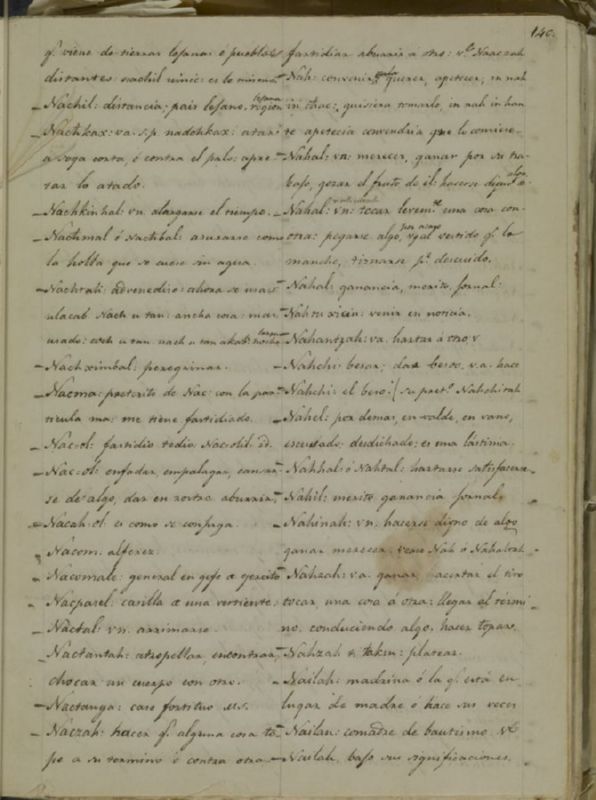 140.
q.e viene de tierras lejanas ó pueblos
distantes: nachil uinic: es lo mismo
Nachil: distancia; pais lejano, region lejana
Nachkax: va. s.p. nadohkax: atar
a soga corta, ó contra el palo: apre-
tar lo atado.
Nachkinhal: vn alargarse el tiempo.
Nachmal ó Nachbal: asurarse como
la holla que se cuese sin agua.
Nachtali: advenedizo: ahora se usa
ulacab. Nach u tan: ancha cosa: mas
usado: coch u tan. nach u tan akab: noche larga
Nachximbal: peregrinar.
Nacma: preterito de Nac: con la par-
ticula ma: me tiene fastidiado.
Nac-ol: fastidio tedio. Nacolil. id.
Nac-ol: enfadar, empalagar, cansar
se de algo, dar en rostro aburrir,
Nacah-ol: es como se conjuga.
Nacom: alferez.
Nacomale: general en gefe de ejercito
Nacpasel: casilla de una vertiente.
Nactal: vn. arrimarse.
Nactantah: atropellar, encontrar,
chocar un cuerpo con otro.
Nactanga: caso fortituo
Naczah: hacer q.e alguna cosa to-
pe a su termino ó contra otra
fastidiar aburrir a otro: v.e Naaczah
Nah: convenir, querer, apetecer, in nah
in chae: quisiera tomarlo, in nah in han
te apetecia convendria que lo comiere
Nahal: va: merecer, ganar por su tra-
bajo, gozar el fruto de él: hacerse digno de algo
Nahal: vn: tocar levem.te una cosa con
otra: pegarse algo, por acaso vertido q.e lo
manche, tiznarse p.r descuido.
Nahal: ganancia, merito, jornal:
Nahtu xicin: venir en noticia.
Nahantzah: va. hartar á otro
Nahchi: besar; dar besos, v.a. hace
Nahchi: el beso: su pret.o Nahchitah
Nahel: por demas, en valde, en vano,
escusado: desdichado: es una lástima.
Nahhal ó Nahtal: hartarse satisfacerse
Nahil: merito ganancia jornal.
Nahinah: vn. hacerse digno de algo
ganar merecer. vease Nah ó Nahaltah
Nahzah: va. ganar, acertar el tiro
tocar una cosa á otra: llegar al térmi-
no, conduciendo algo, hacer topar.
Nahzah ti takin: platear.
Nailah: madrina ó la q.e está en
lugar de madre ó hace sus veces
Nailan: comadre de bautismo
Nailah. bajo sus significaciones.